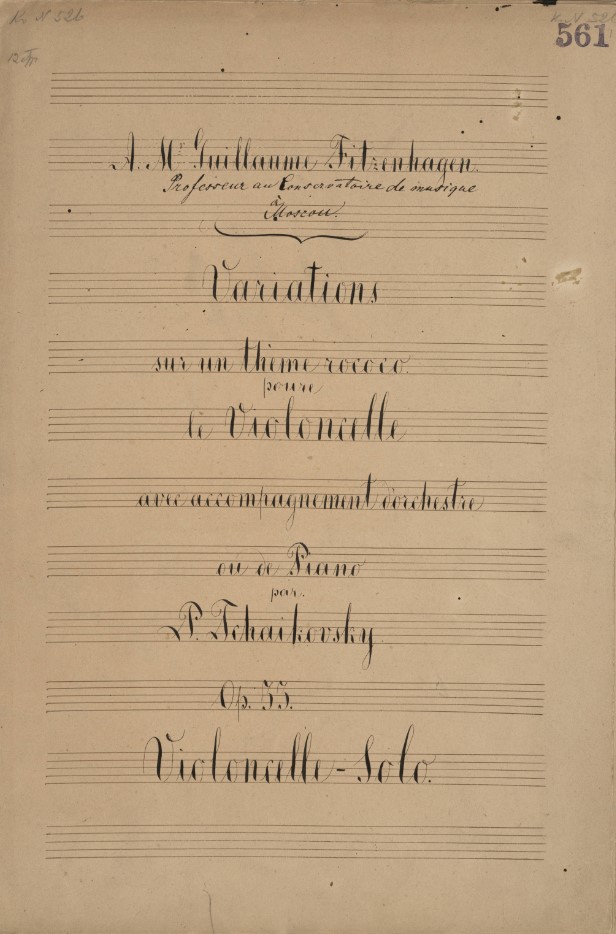 K. N 526
561
A. Mr Guillaume Fitzenhagen.
Professeur au Conservatoire de musique
à
Moscou.
Variations
sur un thème rococo.
poure
le Violoncelle
avec accompagnement d'orchestre
ou de Piano
par.
P. Tchaïkovsky.
Op. 33.
Violoncelle-Solo.